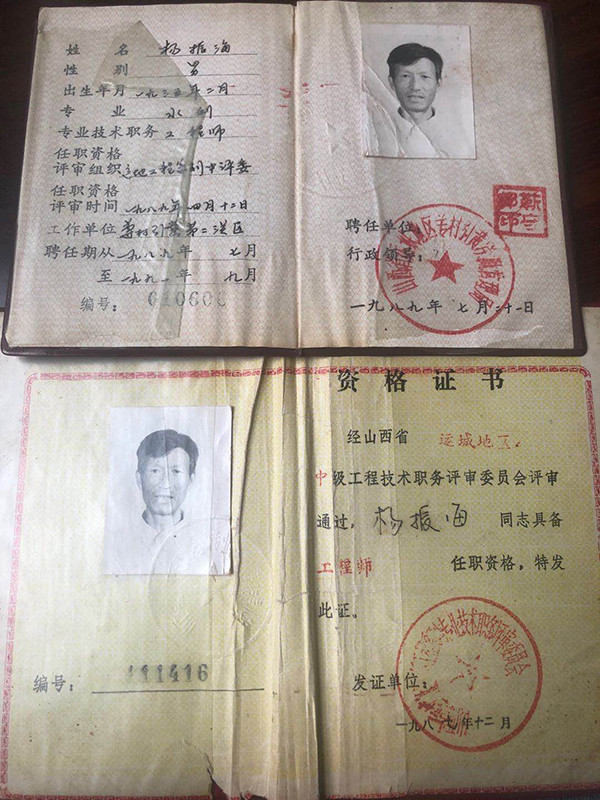 姓 名 杨振海
性 别 男
出生年月 一九三五年二月
专 业 水利
专业技术职务 工程师
任职资格
评审组织 运地工程系列中评委
任职资格
评审时间 一九八九年四月十二日
工作单位 引黄第二灌区
聘任期从 一九八九年 七月
至 一九九一年 九月
编号:
聘任单位:
行政领导:
一九八九年 七月二十一日
资格证书
经山西省 运城地区
中级工程技术职务评审委员会评审
通过, 杨振海 同志具备
工程师 任职资格,特发
此证。
编号: 111416
发证单位:
一九八七年十二月